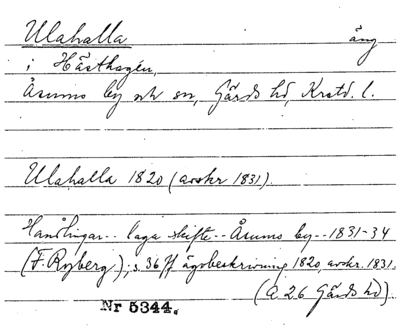 Ulahalla äng
i Hästhagen,
Åsums by och sn, Gärds hd, Krstd. l.
Ulahalla 1820 (avskr 1831).
Handlingar -- laga skifte -- Åsums by -- 1831-34
(F. Ryberg); s. 36 ff ägobeskrivning 1820, avskr. 1831.
(Q 26 Gärds hd)
Nr 5344.